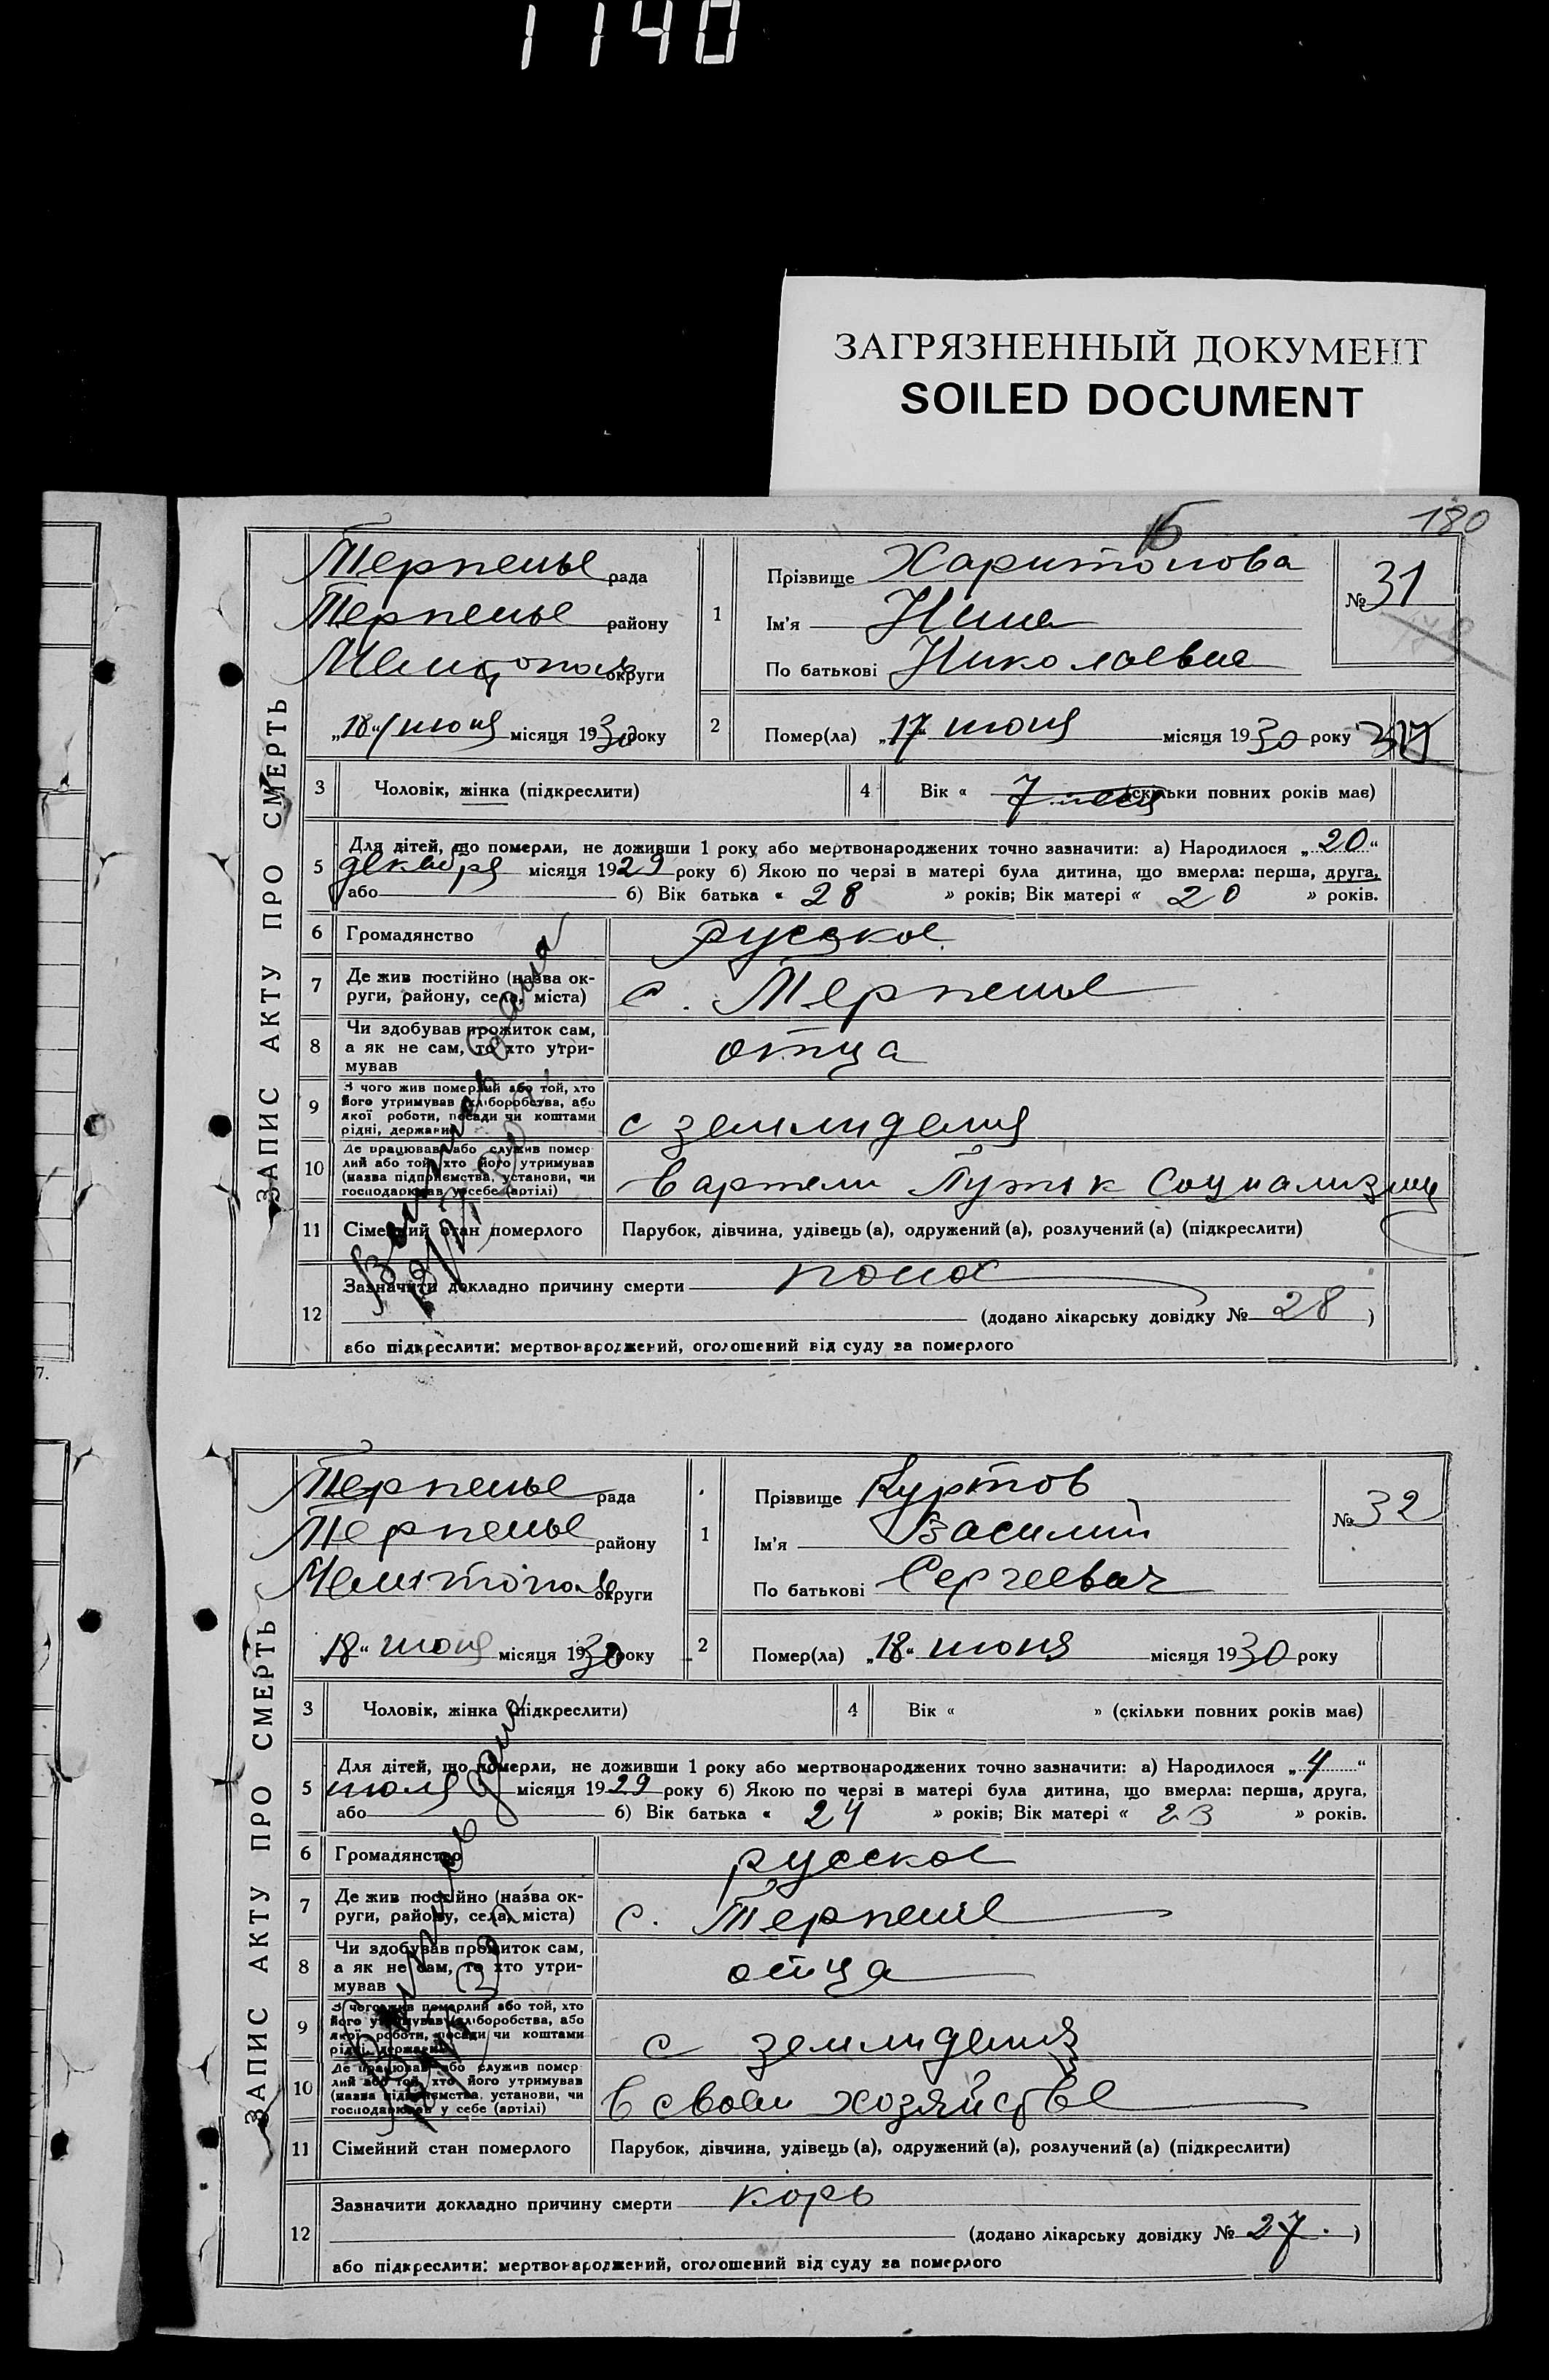 1140
ЗАГРЯЗНЕННЫЙ ДОКУМЕНТ
SOILED DOCUMENT
180
ЗАПИС АКТУ ПРО СМЕРТЬ
Терпенье рада
Терпенье району
Мелитополь округи
„18“ июня місяця 1930 року
1
Прізвище Харитонова
Ім'я Нина
По батькові Николаевна
№ 31
2
Помер(ла) „17“ июня місяця 1930 року
3 Чоловік, жінка (підкреслити)
4 Вік « 7 (скільки повних років має)
5 Для дітей, що померли, не доживши 1 року або мертвонароджених точно зазначити: а) Народилося „20“
декабря місяця 1929 року б) Якою по черзі в матері була дитина, що вмерла: перша, друга,
або б) Вік батька « 28 » років; Вік матері « 20 » років.
6 Громадянство русское
7 Де жив постійно (назва ок-
руги, району, села, міста) с. Терпенье
8 Чи здобував прожиток сам,
а як не сам, то хто утри-
мував отца
9 З чого жив померлий або той, хто
його утримував (хліборобства, або
якої роботи, посади чи коштами
рідні, держави) с землиделия
10 Де працював або служив помер
лий або той, хто його утримував
(назва підприємства, установи, чи
господарював у себе (артілі) в артели Путь к Социализму
11 Сімейний стан померлого Парубок, дівчина, удівець (а), одружений (а), розлучений (а) (підкреслити)
12 Зазначити докладно причину смерти понос
(додано лікарську довідку № 28 )
або підкреслити: мертвонароджений, оголошений від суду за померлого
ЗАПИС АКТУ ПРО СМЕРТЬ
Терпенье рада
Терпенье району
Мелитополь округи
„18“ июня місяця 1930 року
1
Прізвище Куртов
Ім'я Василий
По батькові Сергеевич
№ 32
2
Помер(ла) „18“ июня місяця 1930 року
3 Чоловік, жінка (підкреслити)
4 Вік « » (скільки повних років має)
5 Для дітей, що померли, не доживши 1 року або мертвонароджених точно зазначити: а) Народилося „4“
июля місяця 1929 року б) Якою по черзі в матері була дитина, що вмерла: перша, друга,
або б) Вік батька « 24 » років; Вік матері « 23 » років.
6 Громадянство русское
7 Де жив постійно (назва ок-
руги, району, села, міста) с. Терпение
8 Чи здобував прожиток сам,
а як не сам, то хто утри-
мував отца
9 З чого жив померлий або той, хто
його утримував (хліборобства, або
якої роботи, посади чи коштами
рідні, держави) с землиделия
10 Де працював або служив помер
лий або той, хто його утримував
(назва підприємства, установи, чи
господарював у себе (артілі) в своем хозяйстве
11 Сімейний стан померлого Парубок, дівчина, удівець (а), одружений (а), розлучений (а) (підкреслити)
12 Зазначити докладно причину смерти корь
(додано лікарську довідку № 27. )
або підкреслити: мертвонароджений, оголошений від суду за померлого